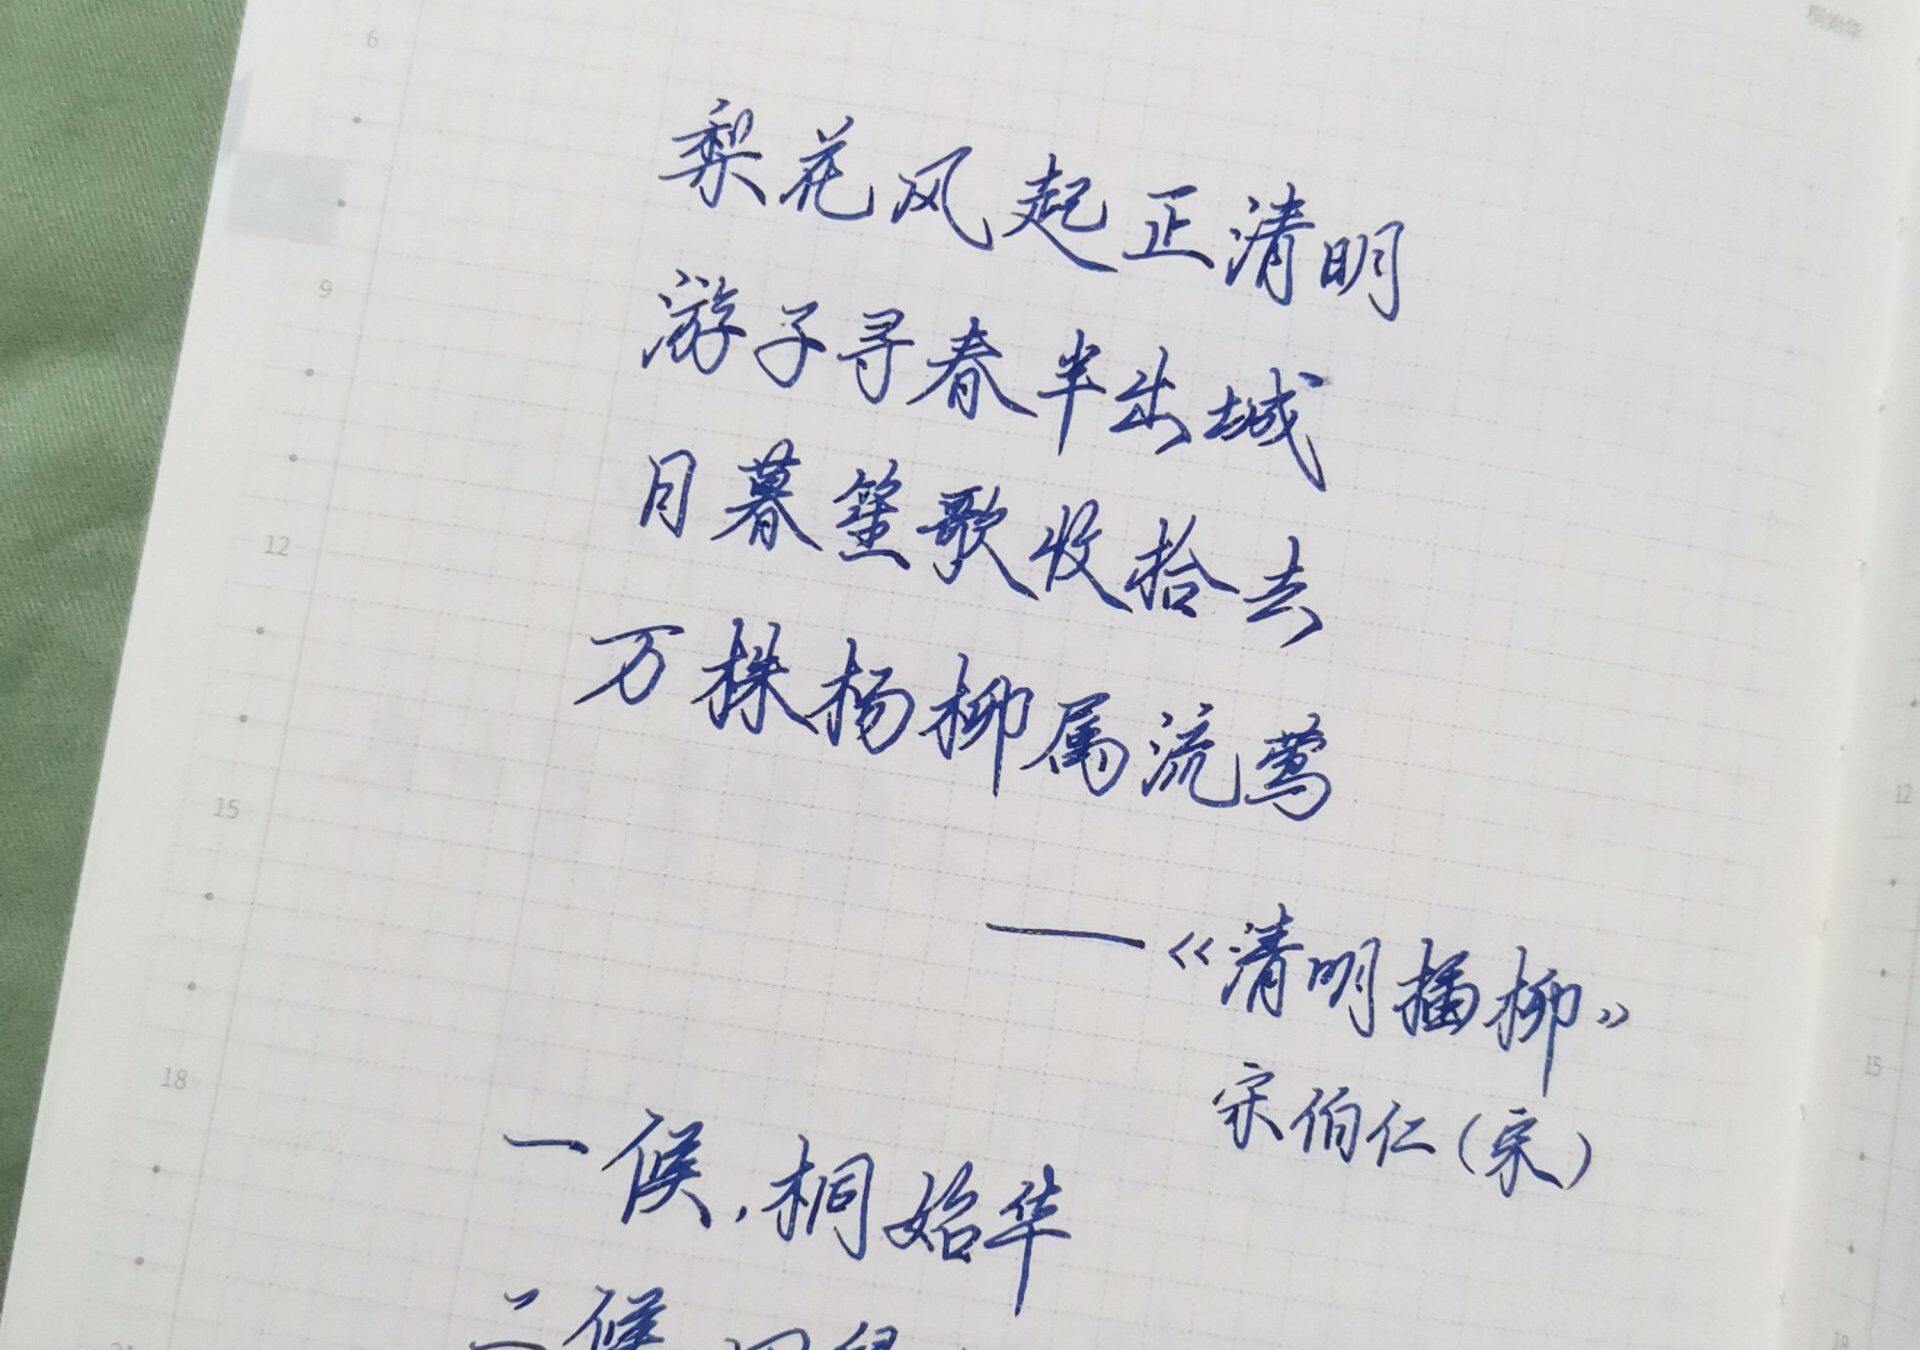 桐始华
6
梨花风起正清明
游子寻春半出城
9
日暮笙歌收拾去
12
万株杨柳属流莺
15
12
——《清明插柳》
15
宋伯仁(宋)
18
一候,桐始华
二候
18